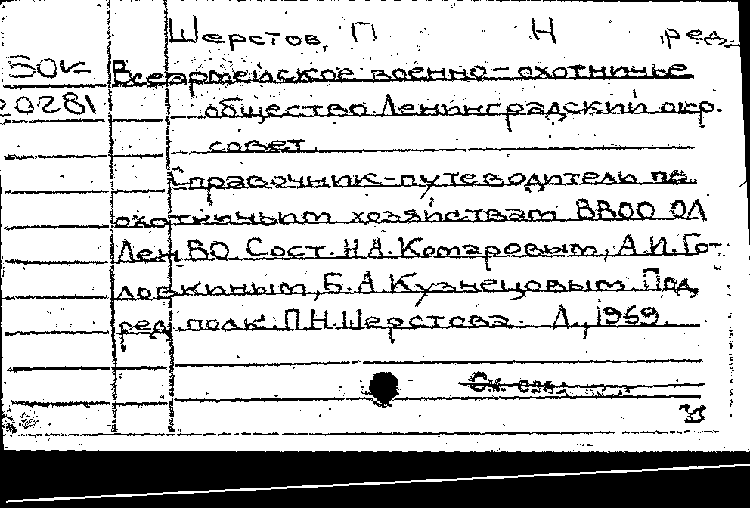 Шерстов, П Н ред.
30к Всеармейское военно-охотничье
20281 общество. Ленинградский окр.
совет.
Справочник-путеводитель по
охотничьим хозяйствам ВВОО ОЛ
ЛенВО. Сост. Н.А. Комаровым, А.И. Го-
ловкиным, Б.А. Кузнецовым. Под
ред. полк. П.Н. Шерстова. Л., 1969.
См.